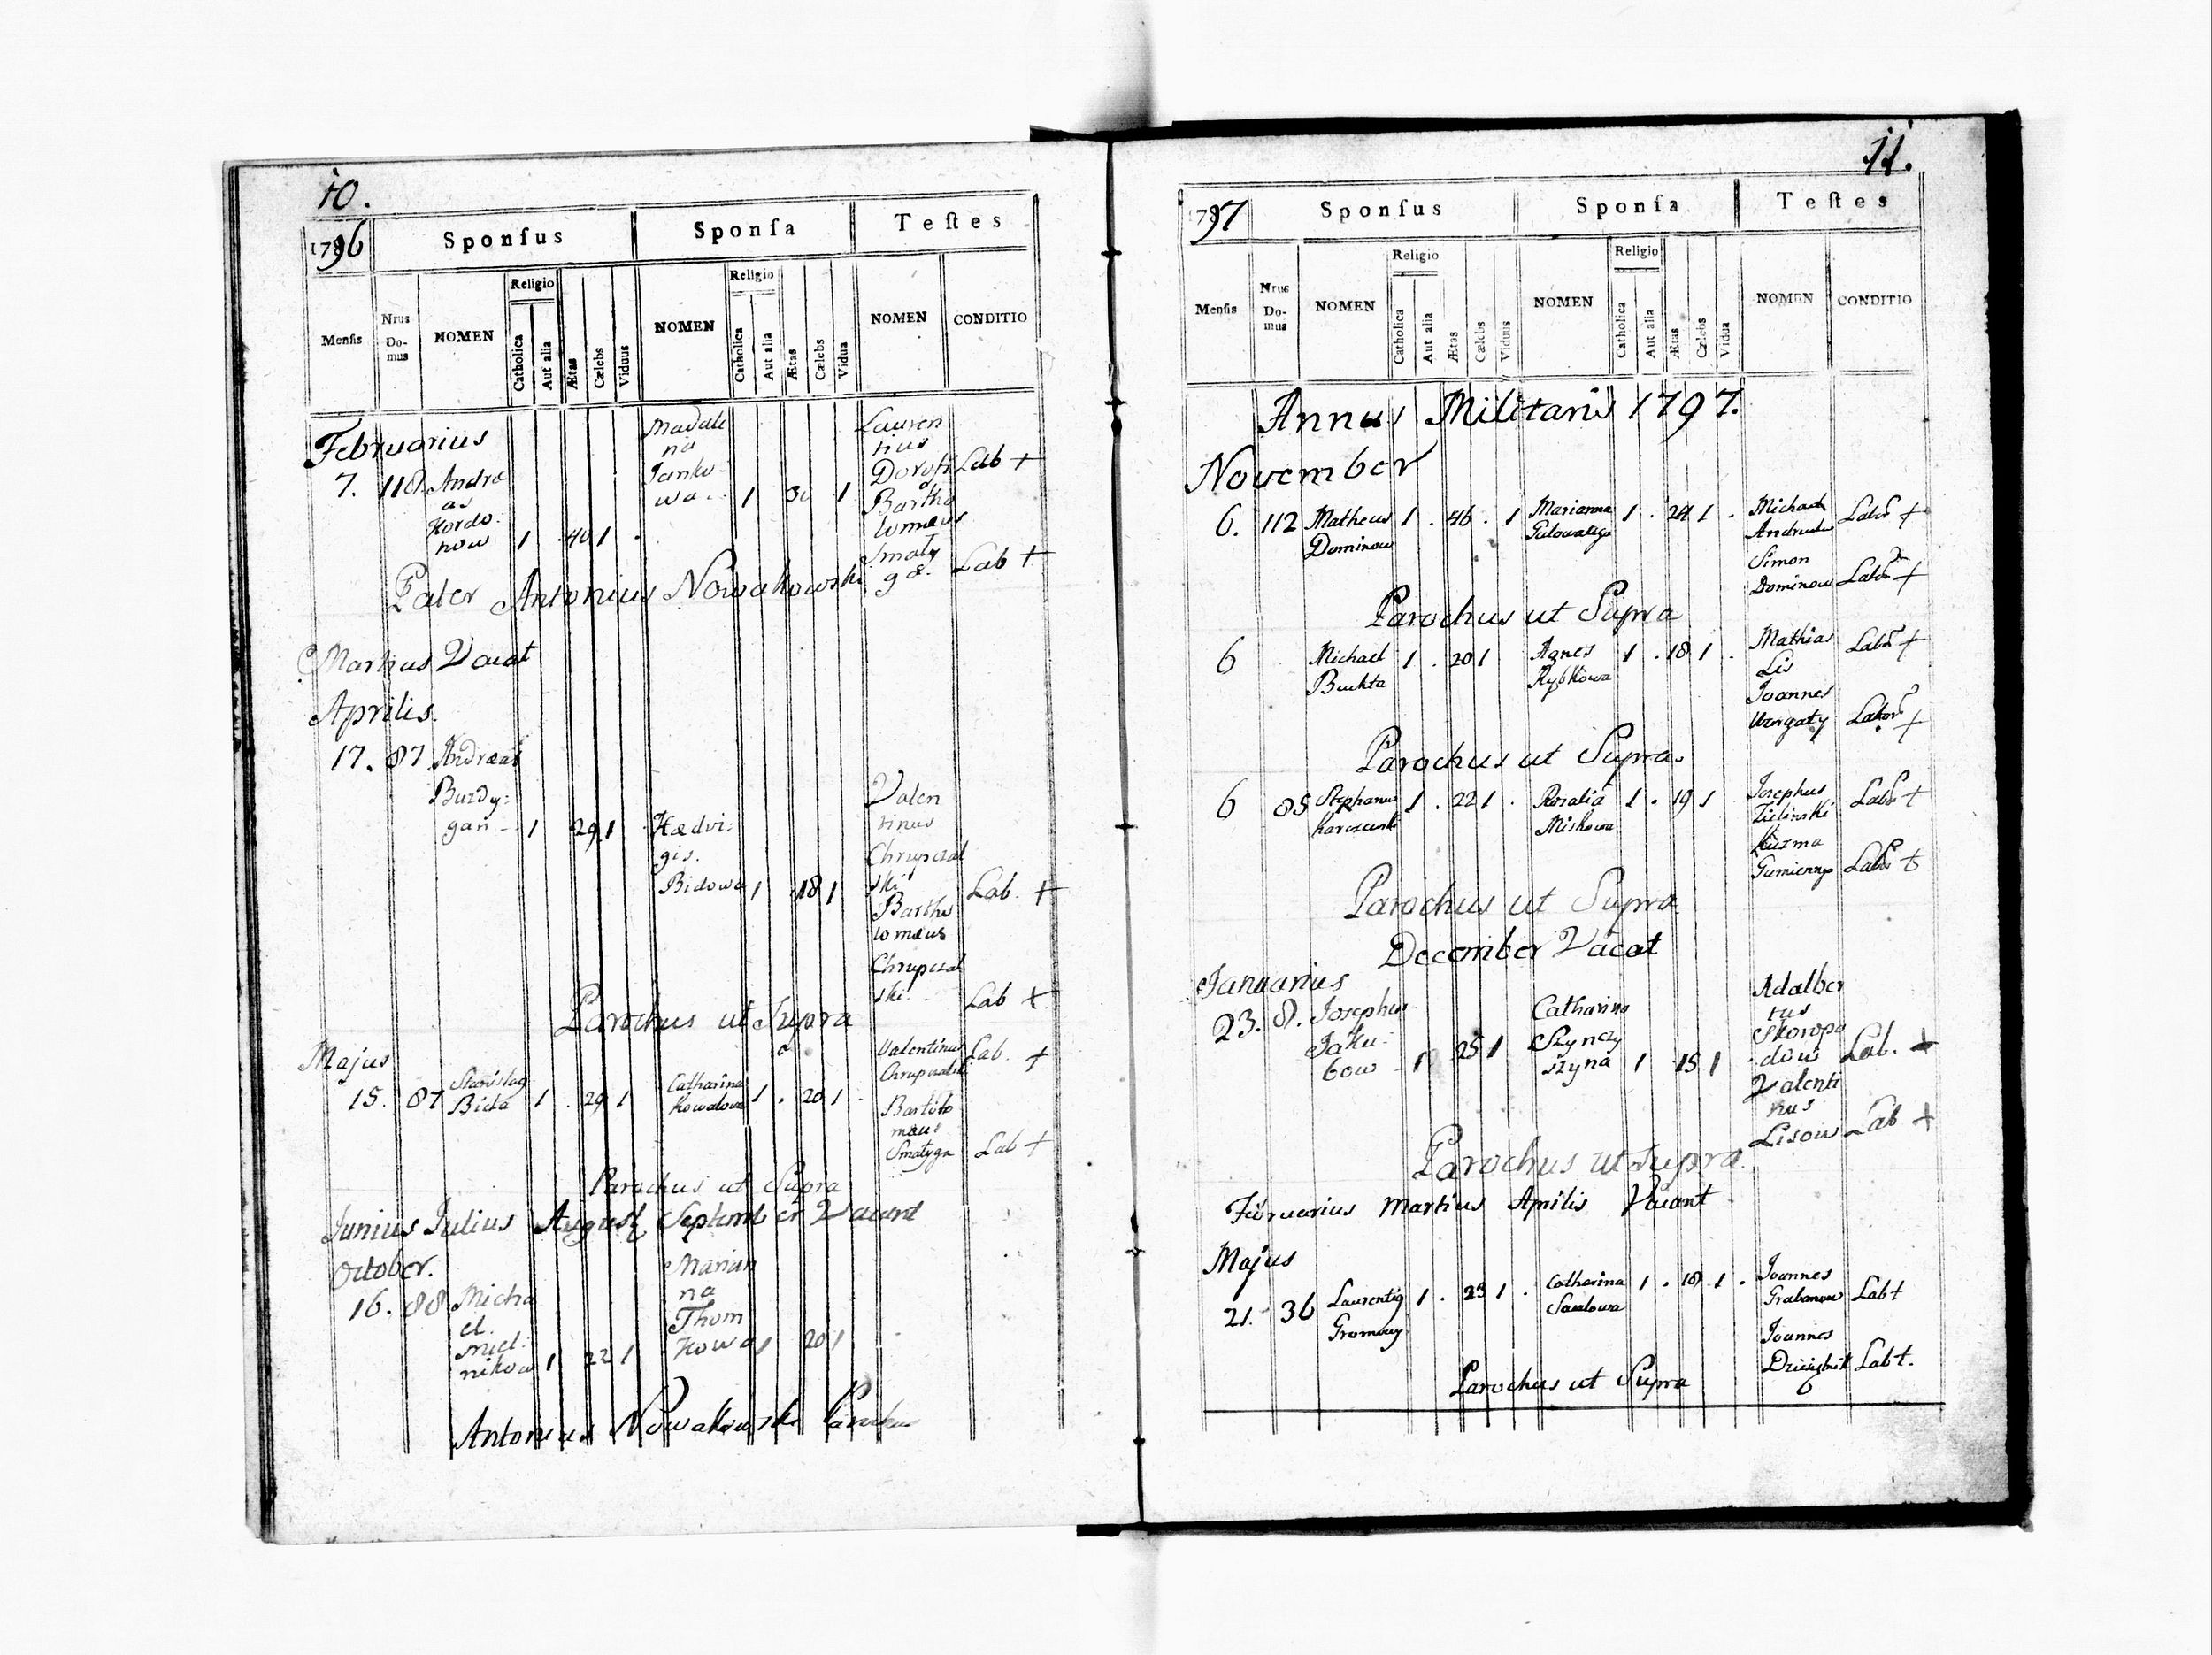 10.
1796
Sponſus
Sponſa
Teſtes
Menſis
Nrus Do-mus
NOMEN
Religio
Catholica
Aut alia
Ætas
Cælebs
Viduus
NOMEN
Religio
Catholica
Aut alia
Ætas
Cælebs
Vidua
NOMEN
CONDITIO
Februarius
7. 118. Andre
as
Kordo
now 1 40 1
Madale
na
Janko-
wa 1 30 1
Lauren
tius
Lab +
Bartho
lomæus
Smaty
ga. Lab +
Pater Antonius Nowakowski
Martius Vacat
Aprilis.
17. 87 Andreas
Burdy-
gan 1 29 1
Hædvi-
gis.
Bidowa 1 18 1
Valen
tinus
Chrupczal
ski
Lab. +
Bartho
lomæus
Chrupczal
ski. Lab +
Parochus ut Supra
Majus
15. 87 Stanislag
Bida 1 . 29 1
Catharina
Kowalowa 1 . 20 1
Valentinus
Lab. +
Bartolo
mæus
Smatyga Lab +
Parochus ut Supra
Junius Julius August September Vacant
October.
16. 88 Micha
el.
Miel-
nikow 1 22 1
Marian
na
Thom
kowa 1 20 1
Antonius Nowakowski Parochus
11.
1797
Sponſus
Sponſa
Teſtes
Menſis
Nrus Do-mus
NOMEN
Religio
Catholica
Aut alia
Ætas
Cælebs
Viduus
NOMEN
Religio
Catholica
Aut alia
Ætas
Cælebs
Vidua
NOMEN
CONDITIO
Annus Militaris 1797.
November
6. 112 Matheus 1 . 46 . 1 Marianna 1 . 24 1 . Michael
Dominow
Simon
Dominow
Parochus ut Supra
6 Michael 1 . 20 1 Agnes 1 . 18 1 . Mathias
Buchta Rybkowa Lis
Joannes
Parochus ut Supra.
6 85 Stephanus 1 . 22 1 . Rosalia 1 . 19 1 Josephus
Karczewski Miskowa Zielinski
Kuzma
Parochus ut Supra
December Vacat
Januarius
23. 8. Josephus
Jaku-
bow 1 25 1
Catharina
Szynczy
szyna 1 15 1
Adalber
tus
Skoropa
dow Lab. +
Valenti
nus
Lisow Lab +
Parochus ut Supra
Februarius Martius Aprilis Vacant
Majus
21. 36 Laurentig 1 . 23 1 . Catharina 1 . 18 1 . Joannes
Lab +
Joannes
Lab +.
Parochus ut Supra